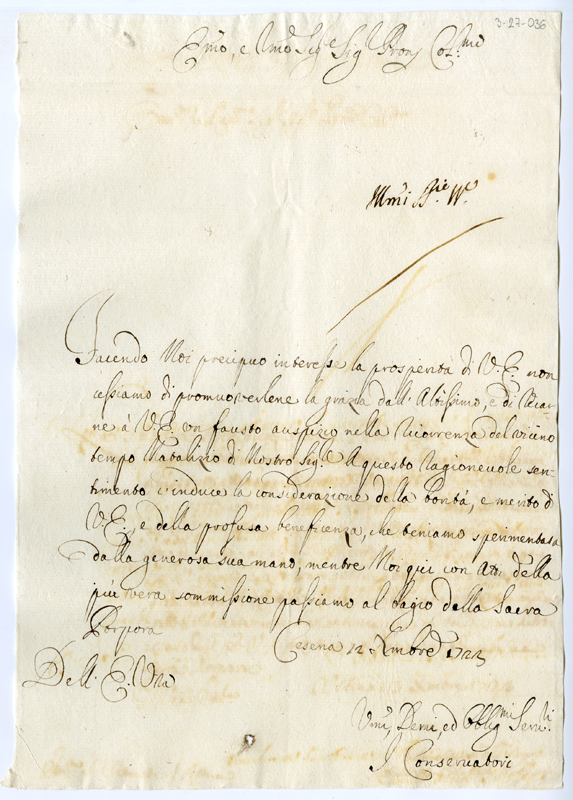 3-27-036
Emo, e Rmo Sig.e Sig.e Pron Col.mo
Facendo Noi precipuo interesse la prosperità di V.E. non
cessiamo di promuoverlene la grazia dall' Altissimo, e di recar-
ne à V.E. un fausto auspizio nella ricorrenza del vicino
tempo Natalizio di Nostro Sig.e A questo ragionevole sen-
timento c'induce la considerazione della bontà, e merito di
V.E., e della profusa beneficenza, che teniamo sperimentata
dalla generosa sua mano, mentre Noi qui con atti della
più vera sommissione passiamo al bagio della Sacra
Porpora Cesena 12 Xmbre 1722
Dell' E. Vra
Umi, Demi, ed Obblig.mi Serv.ri
I Conservatori